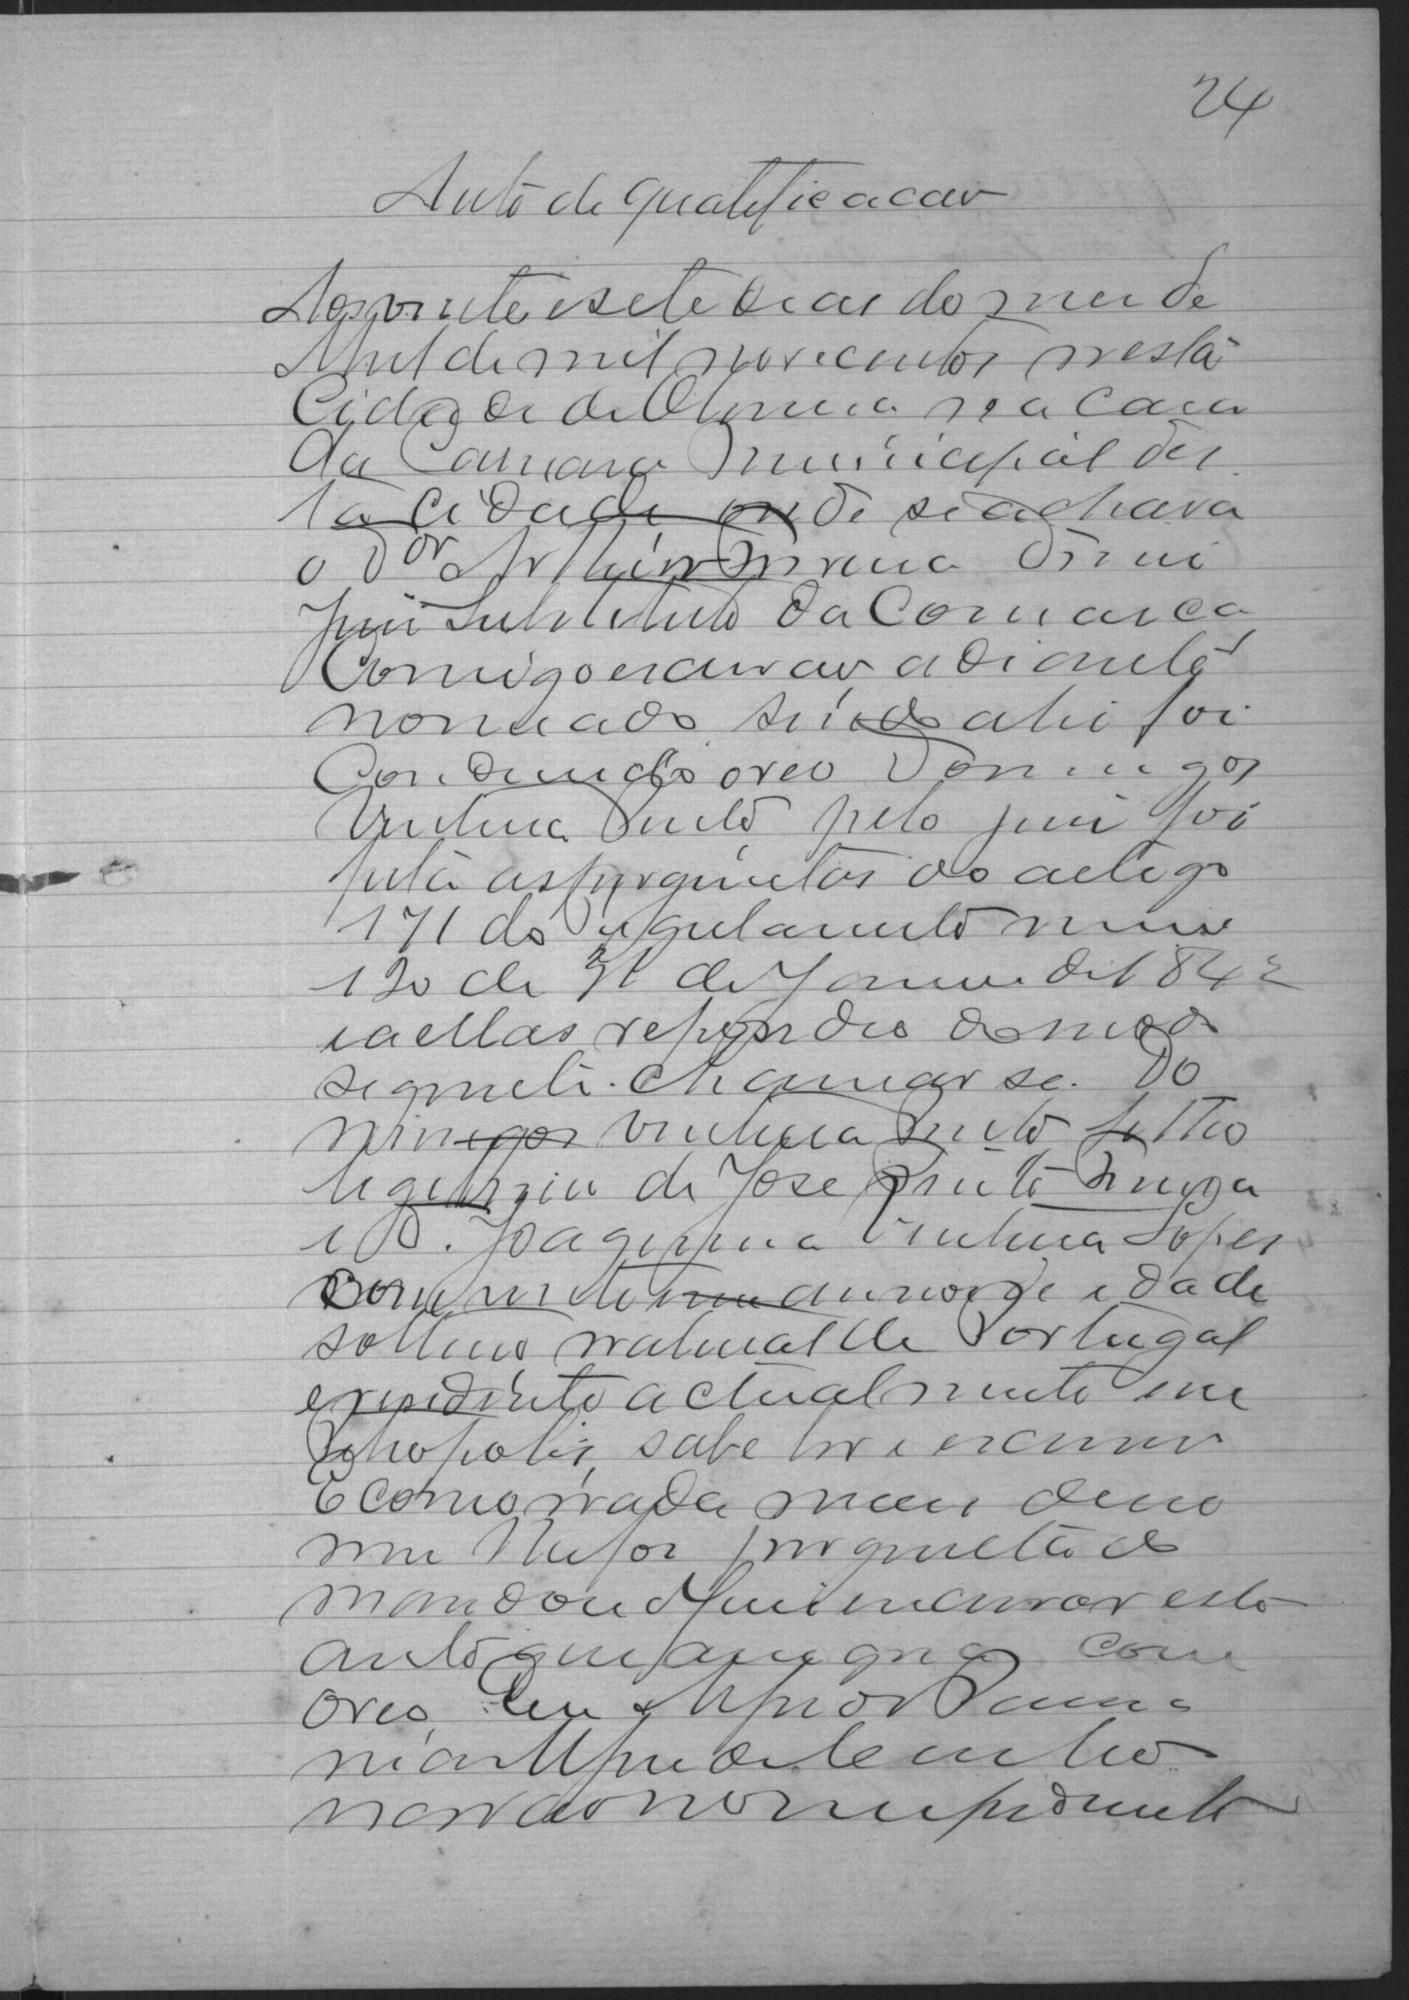 24
Auto de qualificacão
Aos vinte e sete dias do mez de
Abril de mil novecentos nesta
Cidade de na Casa
da Camara Municipal des
ta Cidade onde se achava
o Dor Arthur
juiz Substituto da Comarca
Comigo escrivão adiante
nomeado sendo ahi foi
Condusido o reo Domingos
Ventura Pinto pelo juiz foi
feita as perguntas do artigo
171 do Regulamento num
120 de 31 de Janeiro de 1842
e a ellas respondeo do modo
seguinte. Chamar se. Do
mingos Ventura Pinto filho
legitimo de Jose Pinto
e D. Joaquina Ventura Lopes
Com vinte annos de idade
solteiro natural de Portugal
e residente actualmente em
sabe ler e escrever
E como nada mais disse
nem lhe foi perguntado
mandou o Juiz encerrar este
auto que assigna com
o reo, Eu
nia
no impedimento